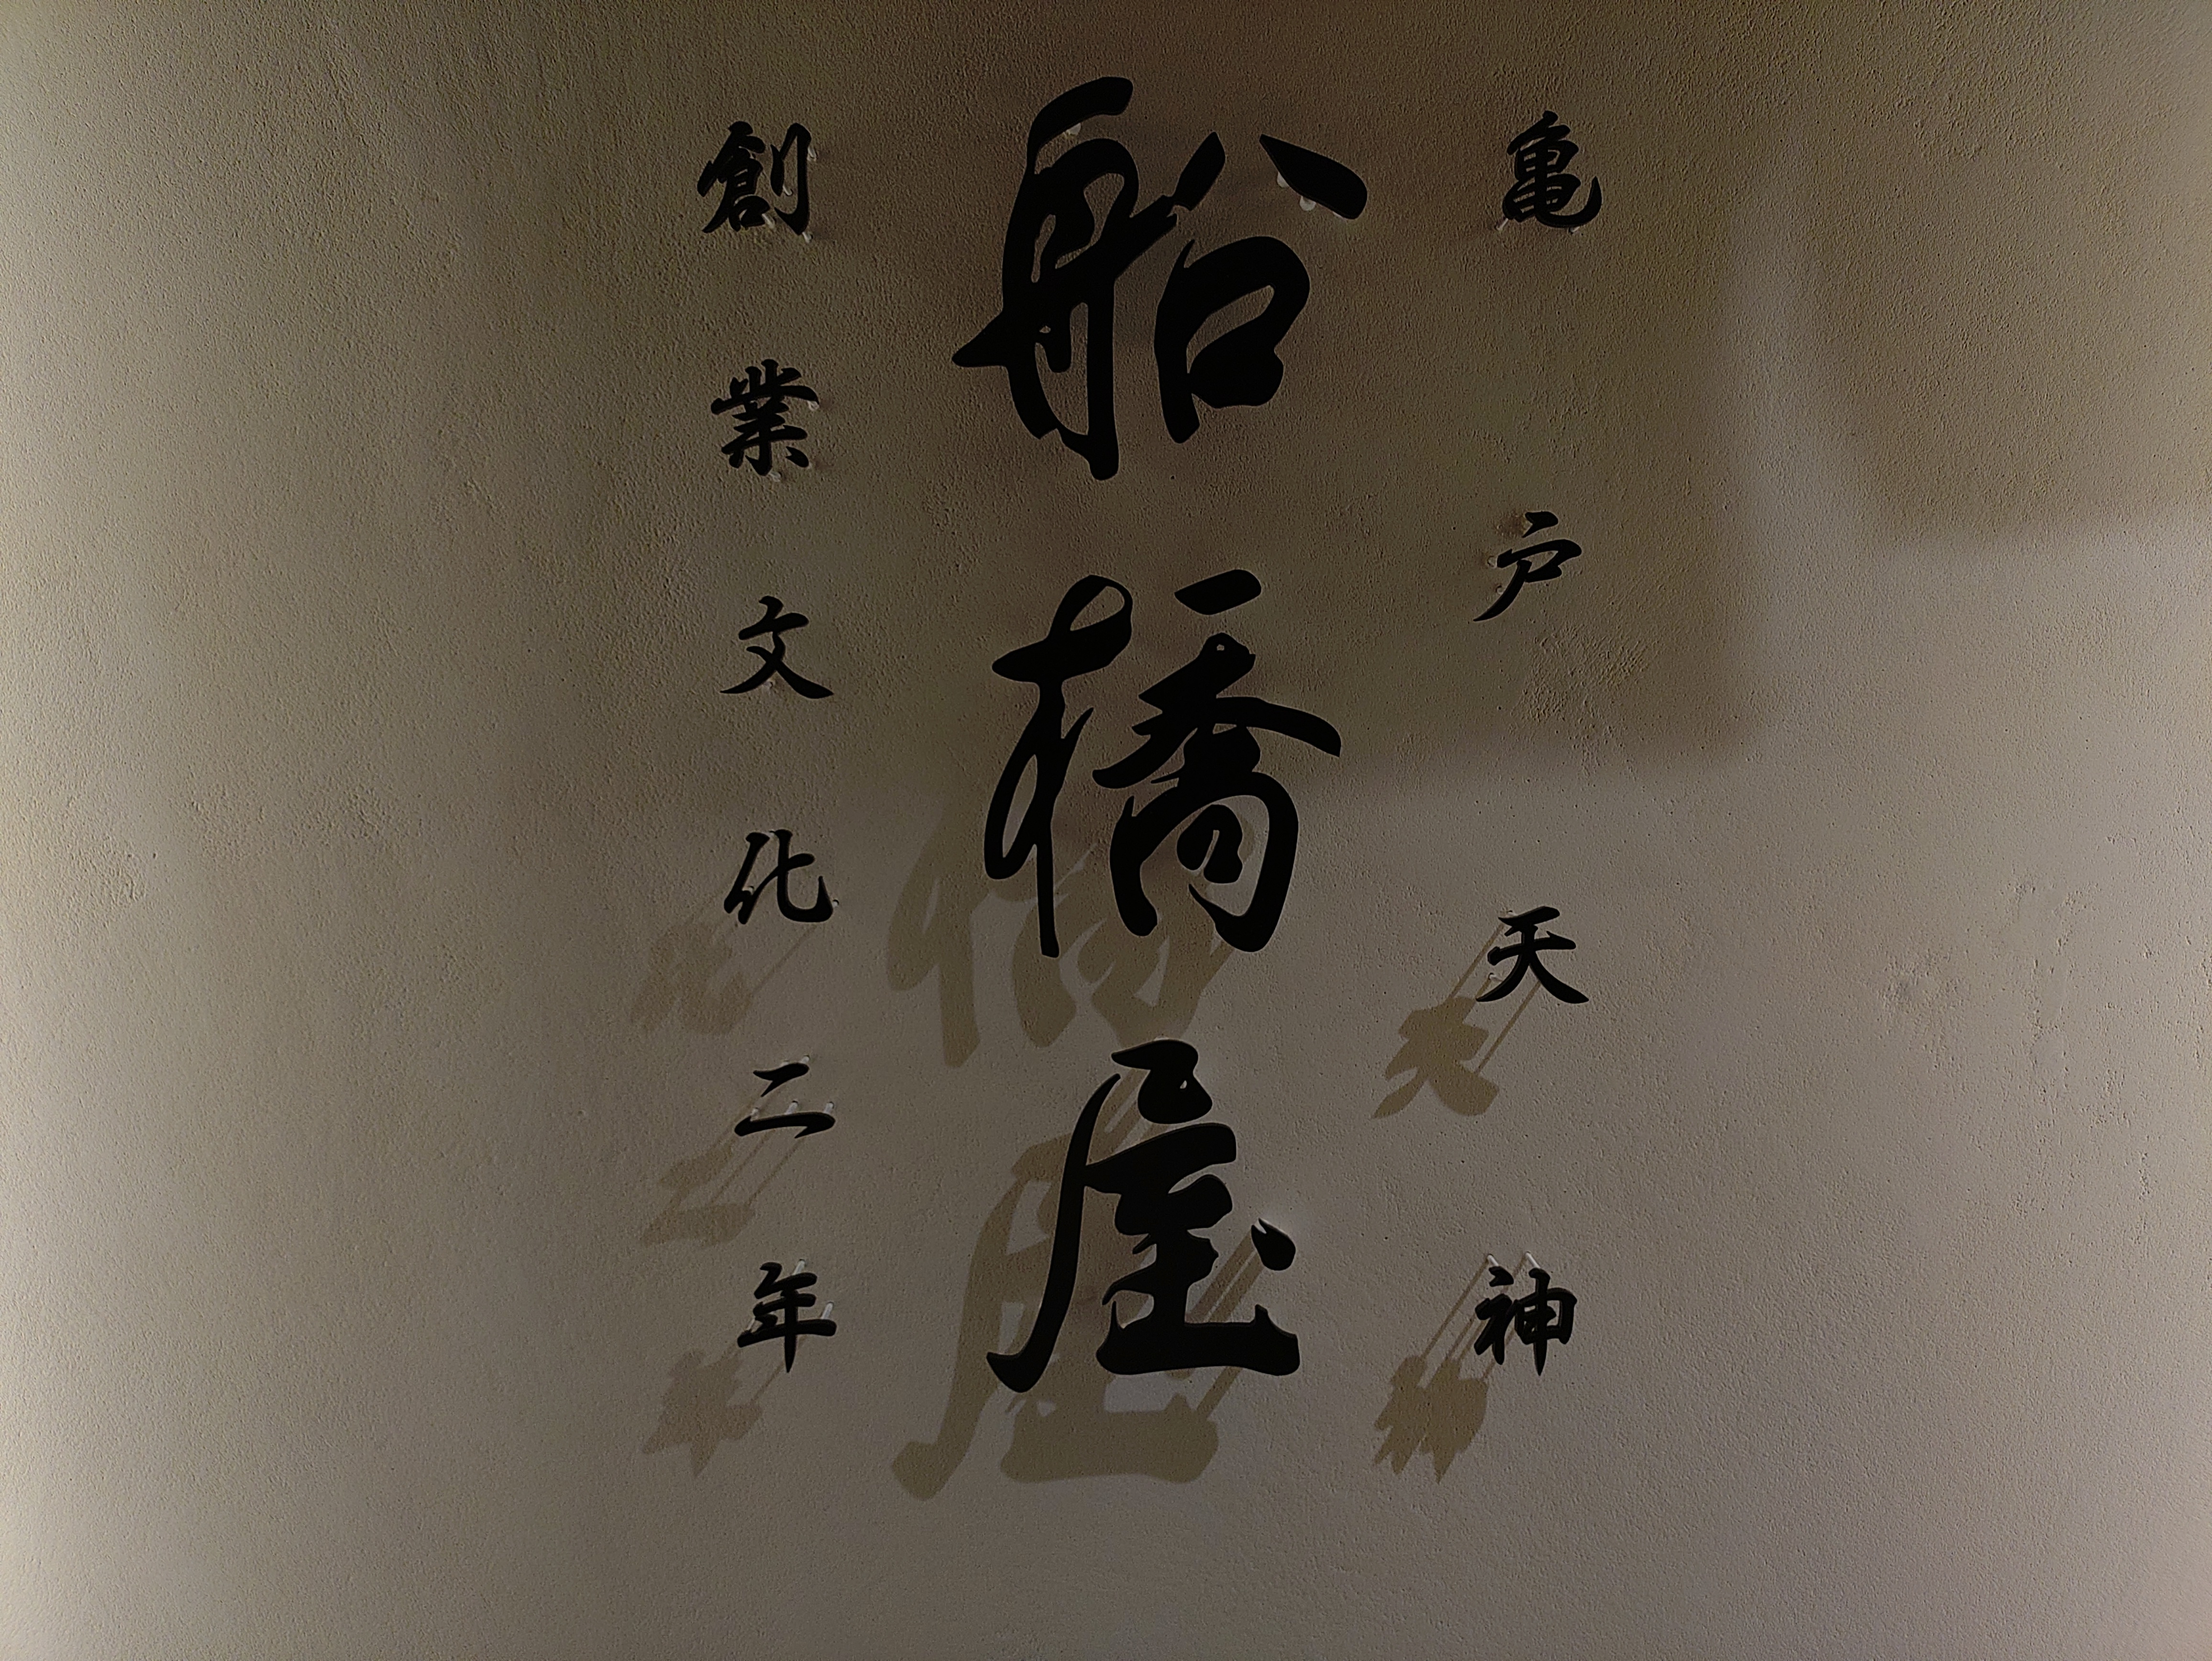 亀戸天神
船橋屋
創業文化二年